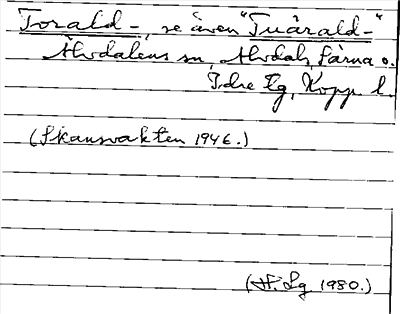 Torald-, se även "Tuårald-"
Älvdalens sn, Älvdals, Särna o.
Idre tg, Kopp. l.
(Skansvakten 1946.)
(H. Lg 1980.)